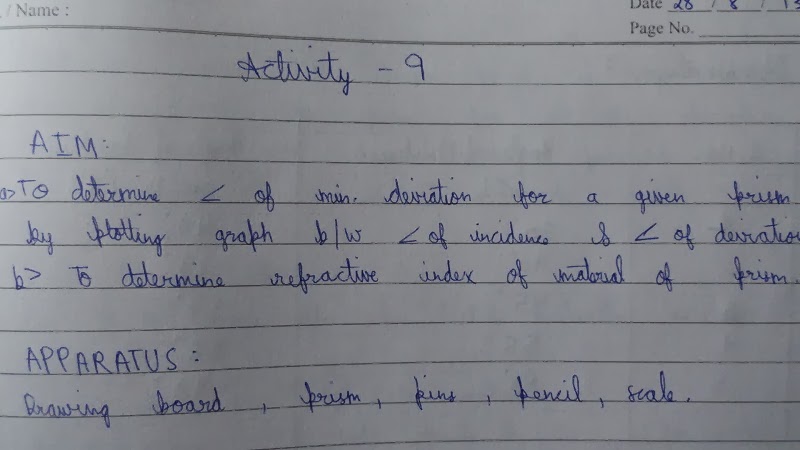 / Name :
Date 28 / 8 /
Page No.
Activity - 9
AIM:
a> To determine ∠ of min. deviation for a given prism
by plotting graph b/w ∠ of incidence & ∠ of deviation
b> To determine refractive index of material of prism.
APPARATUS :
Drawing board , prism, pins , pencil, scale.